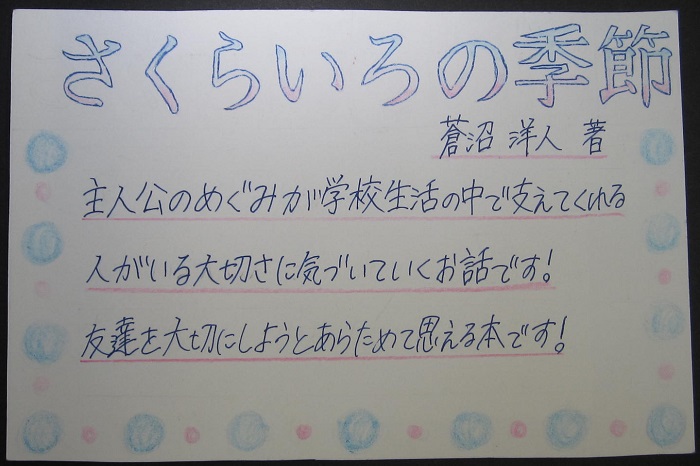 さくらいろの季節
蒼沼 洋人 著
主人公のめぐみが学校生活の中で支えてくれる
人がいる大切さに気づいていくお話です!
友達を大切にしようとあらためて思える本です!